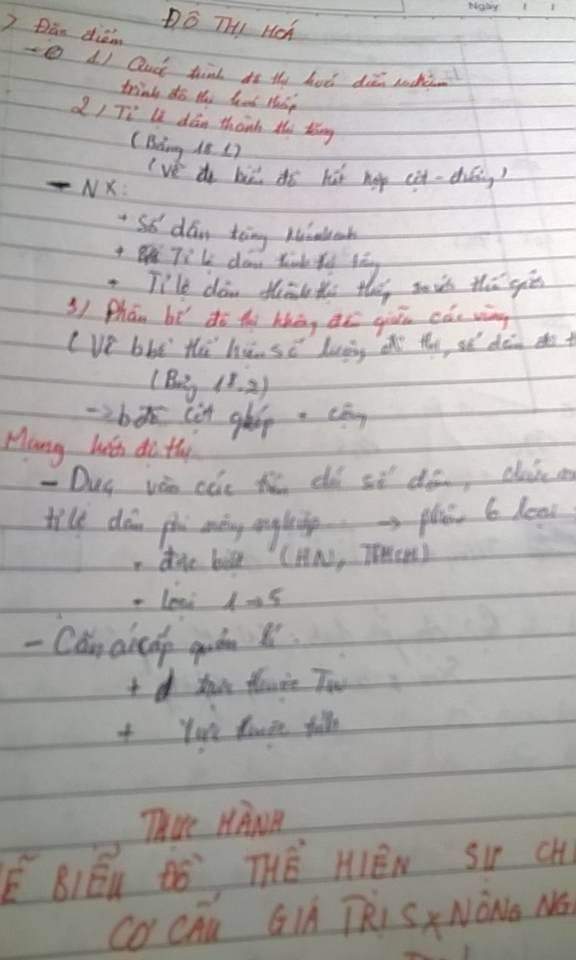 Ngày
ĐÔ THỊ HOÁ
Đặc điểm
1) Quá trình đô thị hoá diễn ra chậm
trình đô thị hoá thấp
2) Tỉ lệ dân thành thị tăng
(Bảng 18.1)
(Vẽ biểu đồ kết hợp cột - đường)
- NX:
+ Số dân tăng nhanh
+ Tỉ lệ dân thành thị tăng
+ Tỉ lệ dân thành thị thấp so với thế giới
3) Phân bố đô thị không đều giữa các vùng
(Vẽ bđ thể hiện số lượng đô thị, số dân đô t
(Bảng 18.2)
cột ghép
Mạng lưới đô thị
- Dựa vào các tiêu chí số dân, chức
tỉ lệ dân phi nông nghiệp → phân 6 loại
+ đặc biệt (HN, TPHCM)
+ Loại 1 → 5
- Căn cứ cấp quản lí
+ trực thuộc TW
+ Trực thuộc tỉnh
THỰC HÀNH
Ẽ BIỂU ĐỒ THỂ HIỆN SỰ CH
CƠ CẤU GIÁ TRỊ SX NÔNG NG